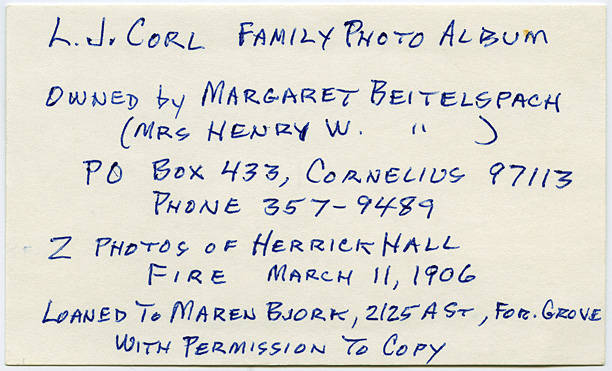 L.J. CORL FAMILY PHOTO ALBUM
OWNED by MARGARET BEITELSPACH
(MRS HENRY W. " )
PO BOX 433, CORNELIUS 97113
PHONE 357-9489
2 PHOTOS OF HERRICK HALL
FIRE MARCH 11, 1906
LOANED TO MAREN BJORK, 2125 A ST, FOR. GROVE
WITH PERMISSION TO COPY